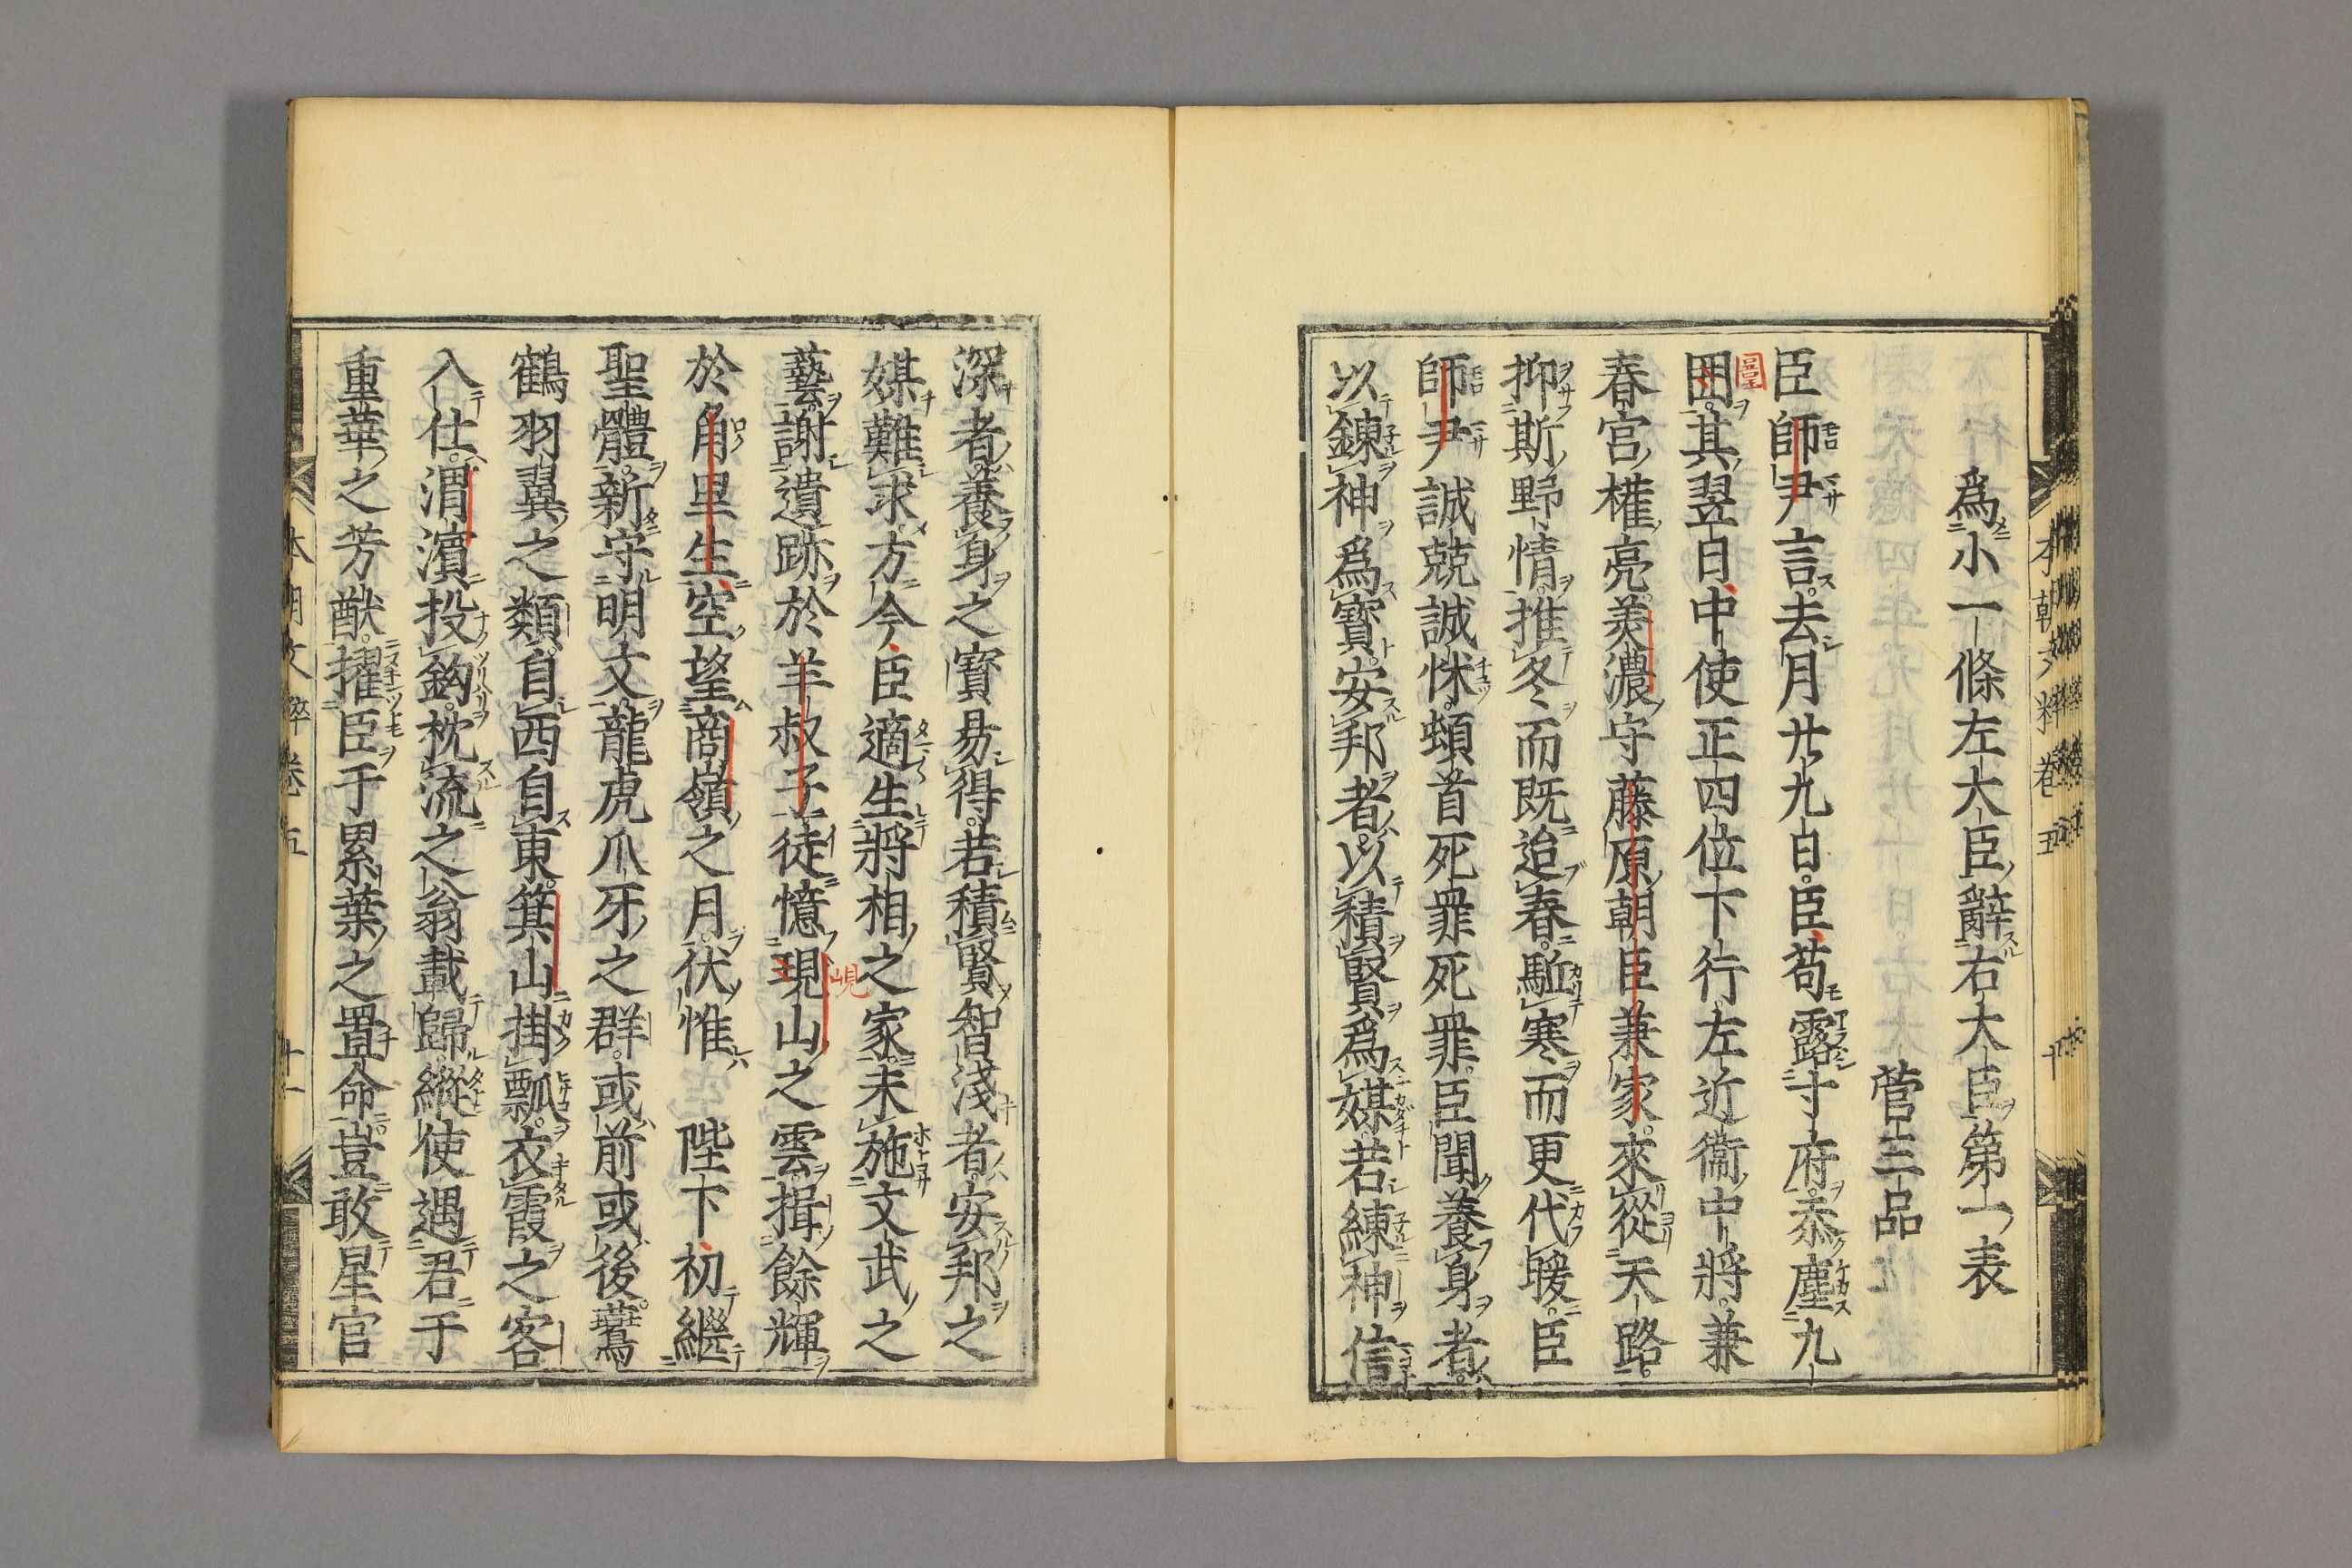 爲小一條左大臣辭右大臣第一表
菅三品
臣師尹言去月廿九日臣苟露寸府忝塵九
囲其翌日中使正四位下行左近衞中將兼
圖
春宮權亮美濃守藤原朝臣兼家來從天路
抑斯野情推冬而既迨春駈寒而更代暖臣
師尹誠兢誠怵頓首死罪死罪臣聞養身者
以錬神爲寳安邦者以積賢爲媒若練神信
深者養身之寳易得若積賢智淺者安邦之
媒難求方今臣適生將相之家未施文武之
藝謝遺跡於羊叔子徒憶現山之雲揖餘輝
峴
於角里生空望商嶺之月伏惟 陛下初繼
聖體新守明文龍虎爪牙之群或前或後鵷
鶴羽翼之類自西自東箕山掛瓢衣霞之客
入仕渭濱投鈎枕流之翁載歸縱使遇君于
重華之芳猷擢臣于累葉之置命豈敢星官
本朝文粹卷五 十一